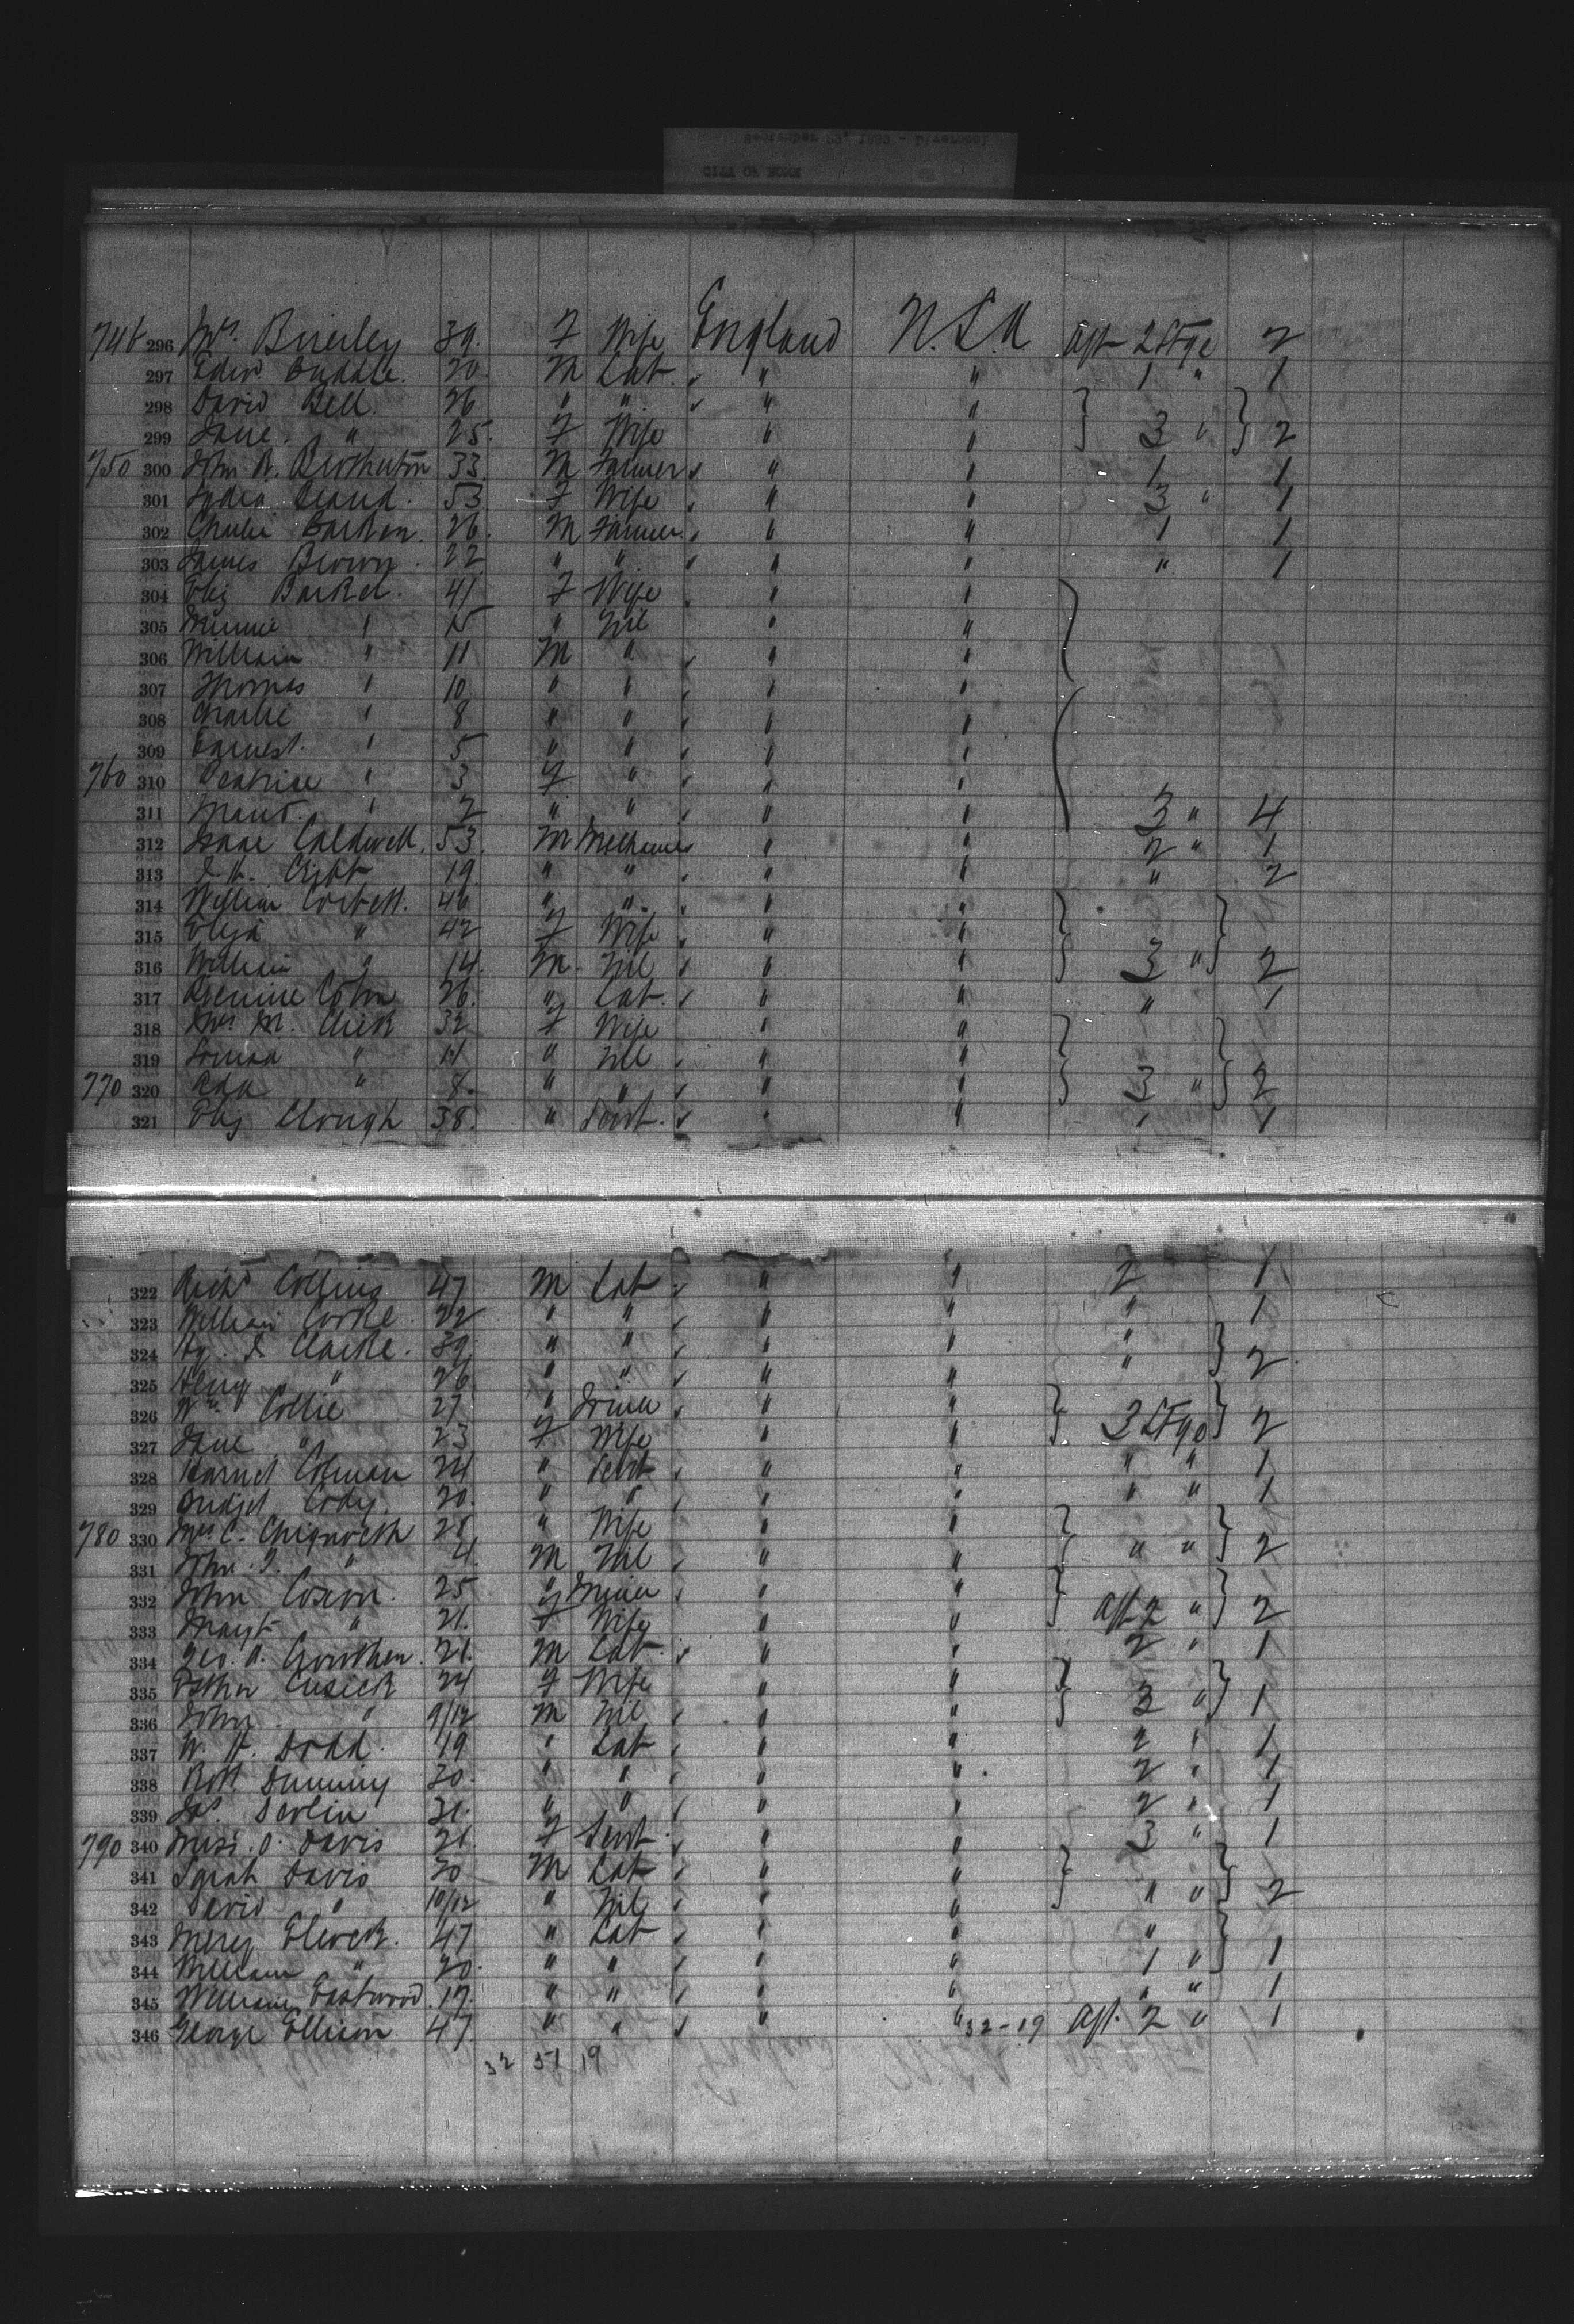 CITY OF ROME
746 296 Mrs. Brierley 39. F Wife England U.S.A aft 2 Stge 2
297 Edwd. 20 M Lab. " " 1 " 1
298 David Bell. 26 " " " " }
299 Jane " 25. F Wife " " } 3 " } 2
750 300 John R. Brotherton 33 M Farmer " " 1 1
301 Lydia 53 F Wife " " 3 " 1
302 Charlie 26. M Farmer " " 1 1
303 James Brown. 22 " " " " " 1
304 Eliz Barker. 41 F Wife " "
305 Minnie " 15 " Nil " "
306 William " 11 M " " "
307 Thomas " 10 " " " "
308 Charlie " 8 " " " "
309 Earnest. " 5 " " " "
760 310 Beatrice " 3 F " " "
311 Maud. " 2 " " " " 3 " 4
312 Isaac Caldwell. 53. M Mechanic " " 2 " 1
313 19 " " " " " 2
314 William Corbett. 46 " " " "
315 Eliza " 42 F Wife " "
316 William " 14. M. Nil " " } 3 " } 2
317 26. " Lab. " " " 1
318 Mrs M. 32 F Wife " "
319 Louisa " 11 " Nil " "
770 320 Ada " 8. " " " " } 3 " } 2
321 Eliz Clough 38. " Servt. " " " 1
322 Richd Collins 47 M Lab " " 2 1
323 William 22 " " " " " 1
324 Hy. Clarke. 39. " " " " "
325 Henry " 26 " " " " " } 2
326 Wm Collie 27 " " "
327 Jane " 23 F Wife " " } 3 Stge } 2
328 Harriet Colman 24 " Servt " " " " 1
329 Bridget Cody 20. " " " " " " 1
780 330 Mrs C. Chignoeth 28 " Wife " "
331 John " 4. M Nil " " " " } 2
332 John Coxon. 25 " Miner " "
333 Margt " 21. F Wife " " aft 2 " } 2
334 Geo. A. 21. M Lab. " " 2 " 1
335 Esther Cusick 24 F Wife " "
336 John. " 9/12 M Nil " " 3 " } 1
337 W. H. Dodd. 19 " Lab " " 2 " 1
338 Robt 30. " " " " 2 " 1
339 Jas. Devlin 31. " " " " 2 " 1
790 340 Miss. O. Davis 21. F Servt. " " 3 " 1
341 Sarah Davis 30 M Lab " "
342 David " 10/12 " Nil " " " " } 2
343 47 " Lab " " "
344 William " 20. " " " " 1 " } 1
345 William Eastwood. 17. " " " " " " 1
346 George Ellison 47 " " " " 32-19 aft. 2 " 1
32 51 19